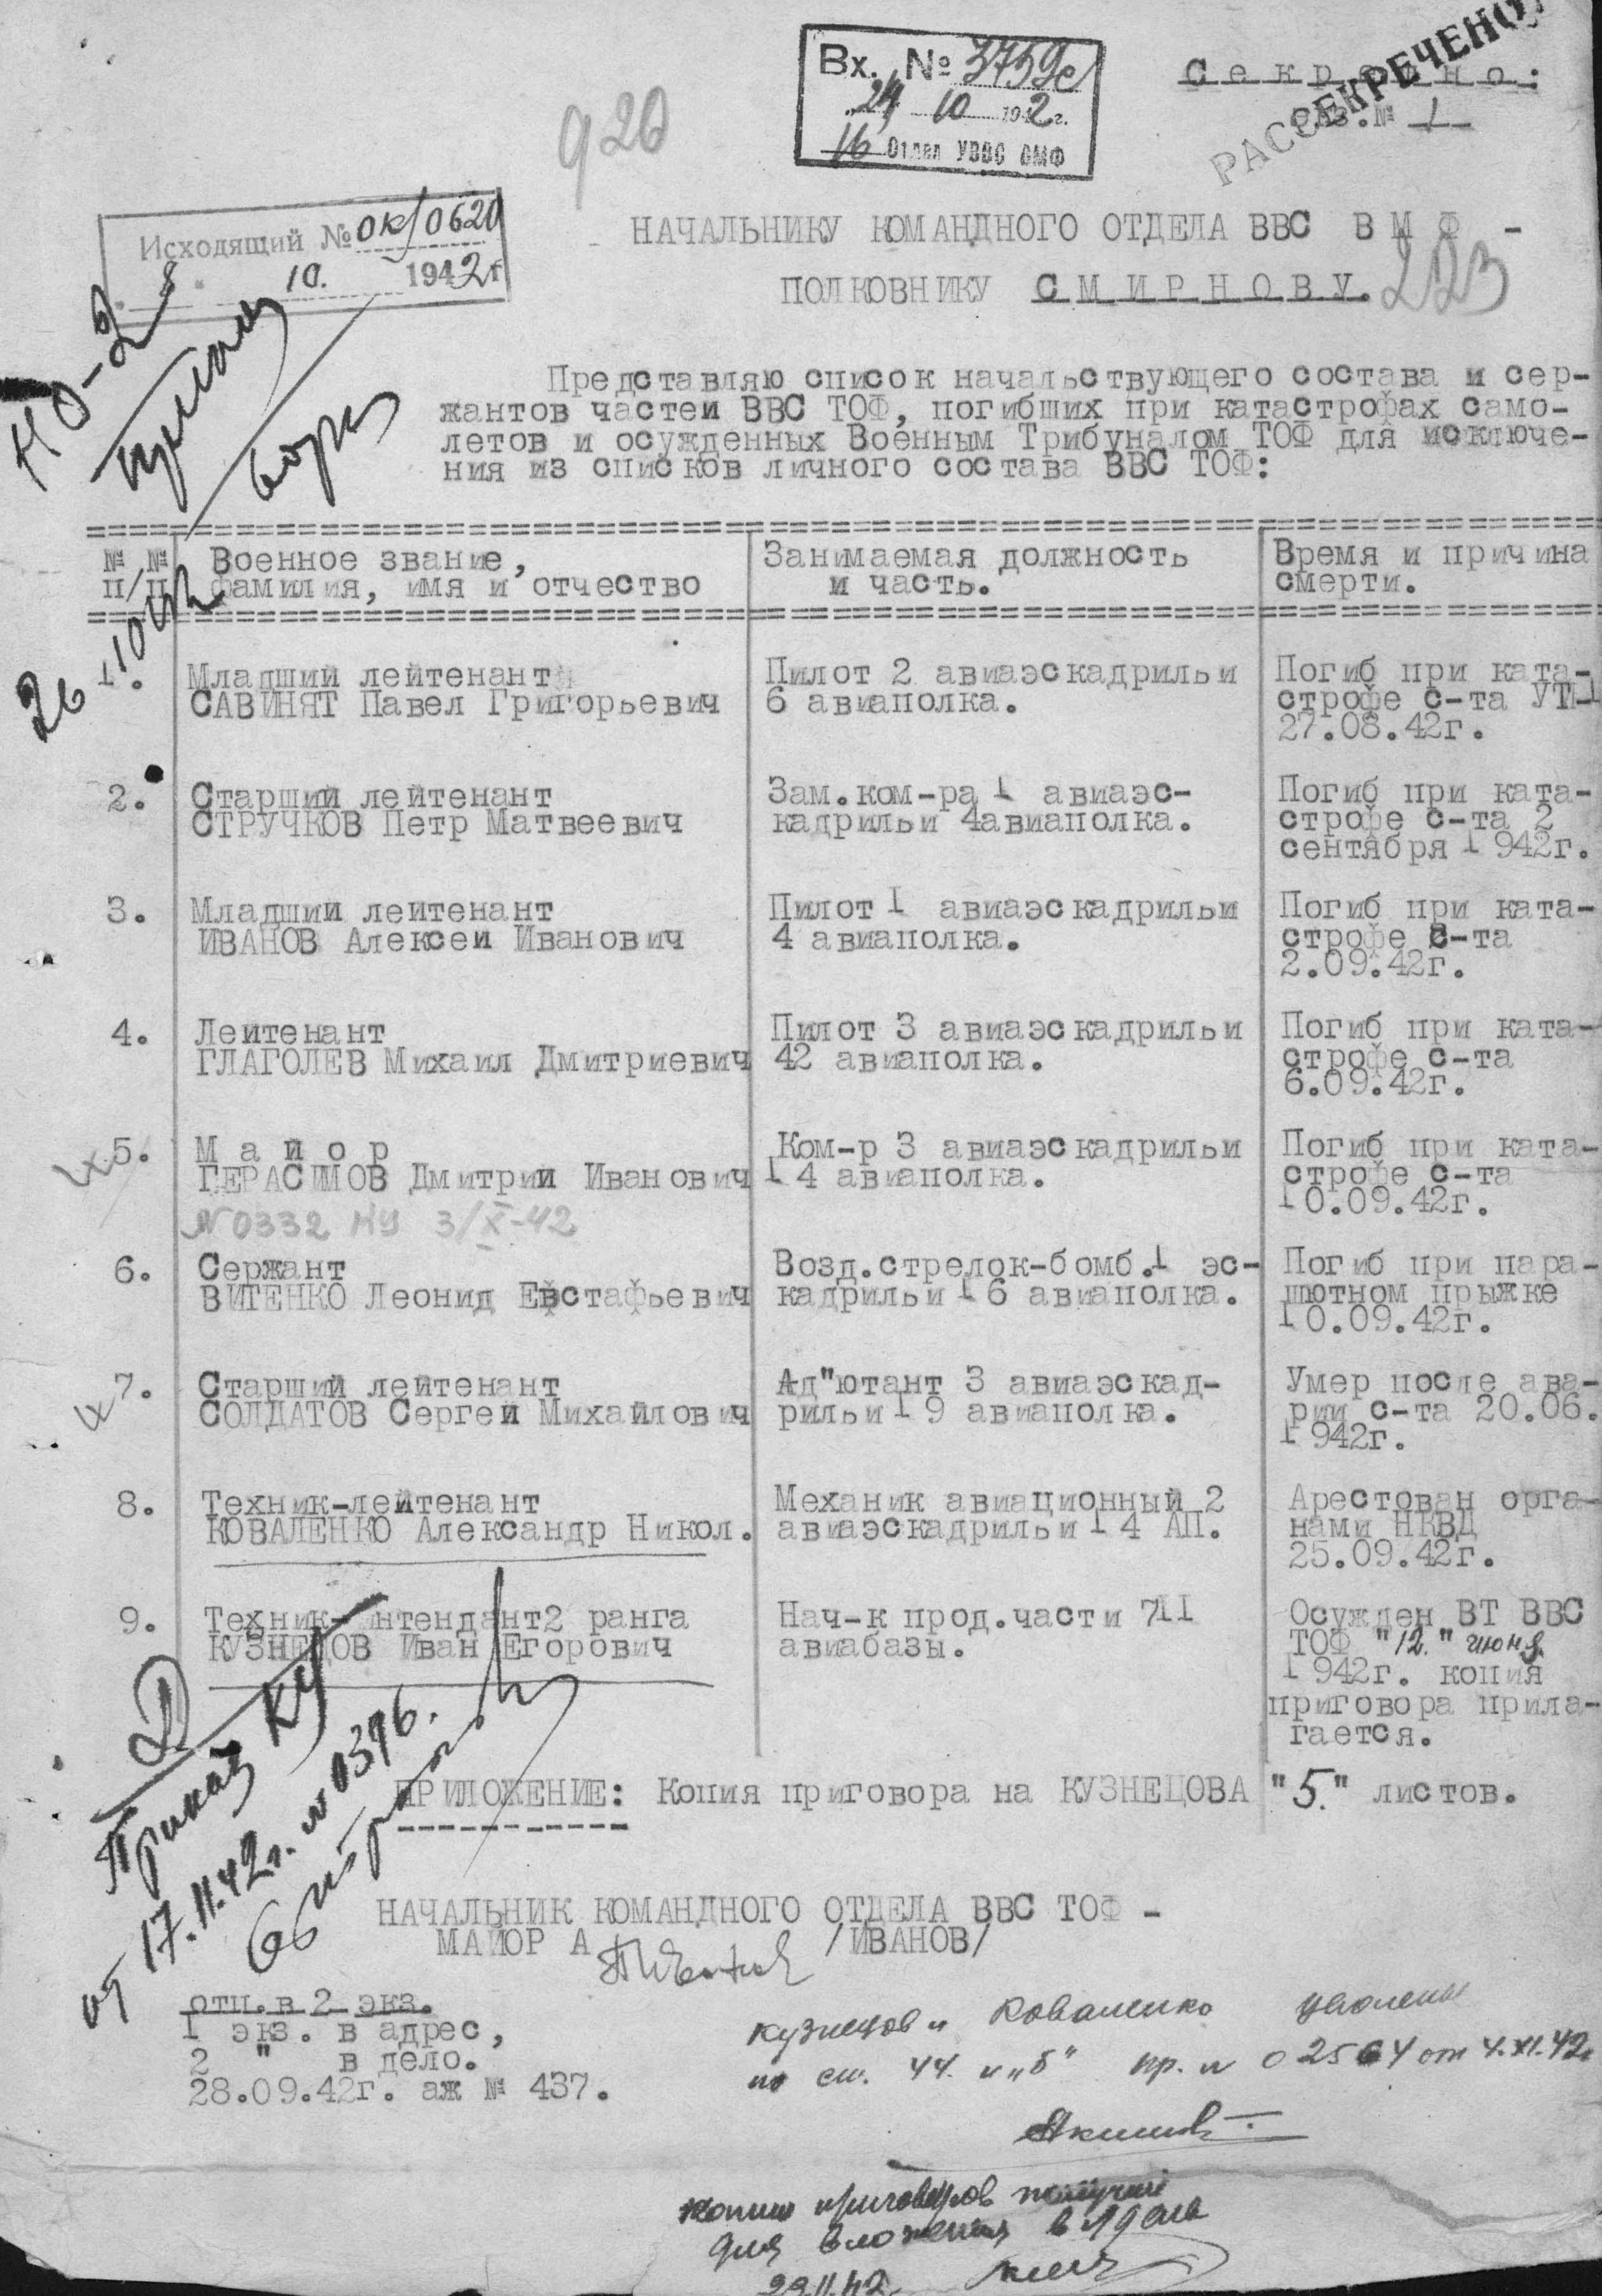 Вх. № 3759с
24 10 1942 г.
16 Отдел УВВС ВМФ
Секретно:
экз. № 1
РАССЕКРЕЧЕНО
920
Исходящий № ОК/0620
8 10. 1942 г
НАЧАЛЬНИКУ КОМАНДНОГО ОТДЕЛА ВВС ВМФ -
ПОЛКОВНИКУ СМИРНОВУ.
223
НО-2
Представляю список начальствующего состава и сер-
жантов частей ВВС ТОФ, погибших при катастрофах само-
летов и осужденных Военным Трибуналом ТОФ для исключе-
ния из списков личного состава ВВС ТОФ:
№ № Военное звание, Занимаемая должность Время и причина
п/п фамилия, имя и отчество и часть. смерти.
26 10
1. Младший лейтенант Пилот 2 авиаэскадрильи Погиб при ката-
САВИНЯТ Павел Григорьевич 6 авиаполка. строфе с-та УТИ-1
27.08.42г.
2. Старший лейтенант Зам.ком-ра 1 авиаэс- Погиб при ката-
СТРУЧКОВ Петр Матвеевич кадрильи 4авиаполка. строфе с-та 2
сентября 1942г.
3. Младший лейтенант Пилот 1 авиаэскадрильи Погиб при ката-
ИВАНОВ Алексей Иванович 4 авиаполка. строфе с-та
2.09.42г.
4. Лейтенант Пилот 3 авиаэскадрильи Погиб при ката-
ГЛАГОЛЕВ Михаил Дмитриевич 42 авиаполка. строфе с-та
6.09.42г.
5. Майор Ком-р 3 авиаэскадрильи Погиб при ката-
ГЕРАСИМОВ Дмитрий Иванович 14 авиаполка. строфе с-та
10.09.42г.
№0332 НУ 3/X-42
6. Сержант Возд.стрелок-бомб.1 эс- Погиб при пара-
ВИТЕНКО Леонид Евстафьевич кадрильи 16 авиаполка. шютном прыжке
10.09.42г.
7. Старший лейтенант Ад"ютант 3 авиаэскад- Умер после ава-
СОЛДАТОВ Сергей Михайлович рильи 19 авиаполка. рии с-та 20.06.
1942г.
8. Техник-лейтенант Механик авиационный 2 Арестован орга-
КОВАЛЕНКО Александр Никол. авиаэскадрильи 14 АП. нами НКВД
25.09.42г.
9. Техник-интендант2 ранга Нач-к прод.части 711 Осужден ВТ ВВС
КУЗНЕЦОВ Иван Егорович авиабазы. ТОФ "12." июня
1942г. копия
приговора прила-
гается.
Приказ КУ
от 17.11.42г. № 0396.
ПРИЛОЖЕНИЕ: Копия приговора на КУЗНЕЦОВА "5." листов.
НАЧАЛЬНИК КОМАНДНОГО ОТДЕЛА ВВС ТОФ -
МАЙОР А /ИВАНОВ/
отп. в 2 экз.
1 экз. в адрес,
2 " в дело.
28.09.42г. аж № 437.
Кузнецов и Коваленко уволены
по ст. 44 п „б" пр. № 02564 от 4.XI.42г
Копии приговоров получил
для вложения в л/дела
29.11.42.